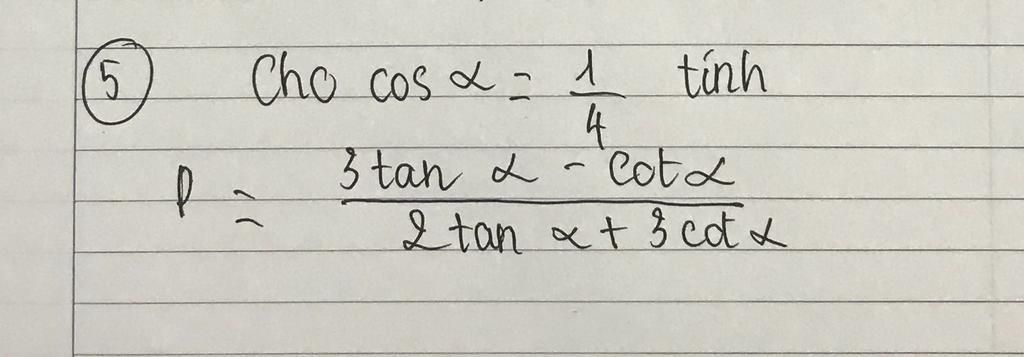 5 Cho cos α = 1/4 tính
P = (3 tan α - cot α)/(2 tan α + 3 cot α)